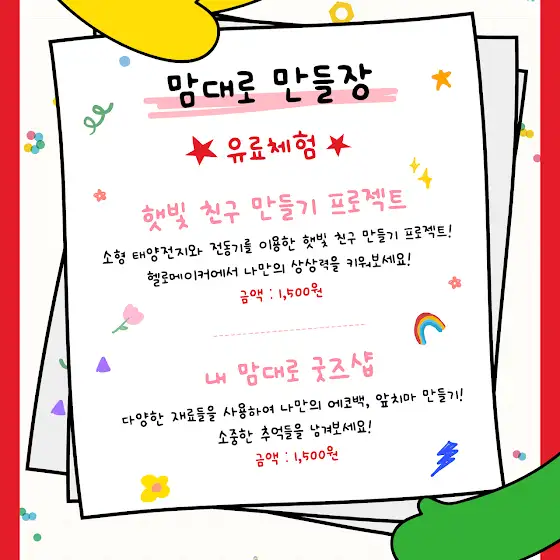 맘대로 만들장
유료체험
햇빛 친구 만들기 프로젝트
소형 태양전지와 전동기를 이용한 햇빛 친구 만들기 프로젝트!
헬로메이커에서 나만의 상상력을 키워보세요!
금액 : 1,500원
내 맘대로 굿즈샵
다양한 재료들을 사용하여 나만의 에코백, 앞치마 만들기!
소중한 추억들을 남겨보세요!
금액 : 1,500원